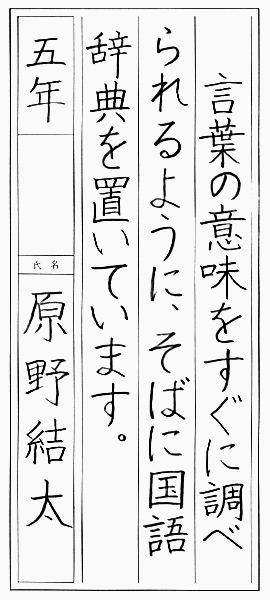 言葉の意味をすぐに調べ
られるように、そばに国語
辞典を置いています。
五年
氏名
原野結太